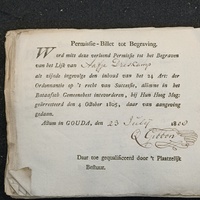 Permissie-Billet tot Begraving.
Word mits deze verleend Permissie tot het Begraven
van het Lijk van Aafje
als zijnde ingevolge den inhoud van het 24 Art: der
Ordonnantie op 't recht van Successie, alomme in het
Bataafsch Gemeenebest intevoorderen, bij Hun Hoog Mog:
gearresteerd den 4 October 1805, daar van aangeving
gedaan.
Actum in GOUDA, den 23 July
Daar toe gequalificeerd door 't Plaatselijk
Bestuur.